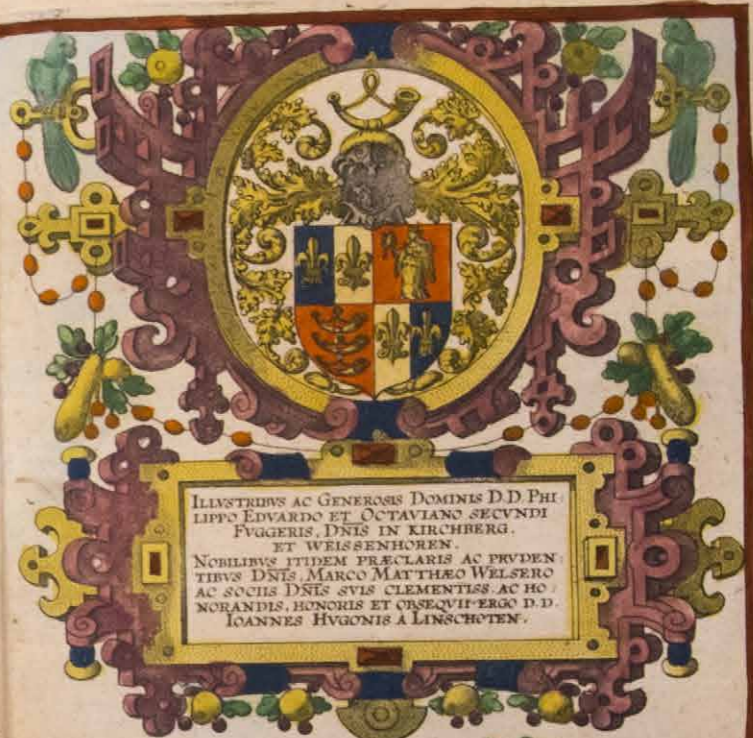 ILLVSTRIBVS AC GENEROSIS DOMINIS D.D. PHI:
LIPPO EDVARDO ET OCTAVIANO SECVNDI
FVGGERIS, DN̅I̅S IN KIRCHBERG.
ET WEISSENHOREN.
NOBILIBVS ITIDEM PRÆCLARIS AC PRVDEN:
TIBVS DN̅I̅S. MARCO MATTHÆO WELSERO
AC SOCIIS DN̅I̅S SVIS CLEMENTISS. AC HO:
NORANDIS, HONORIS ET OBSEQVII ERGO D.D.
IOANNES HVGONIS A LINSCHOTEN.